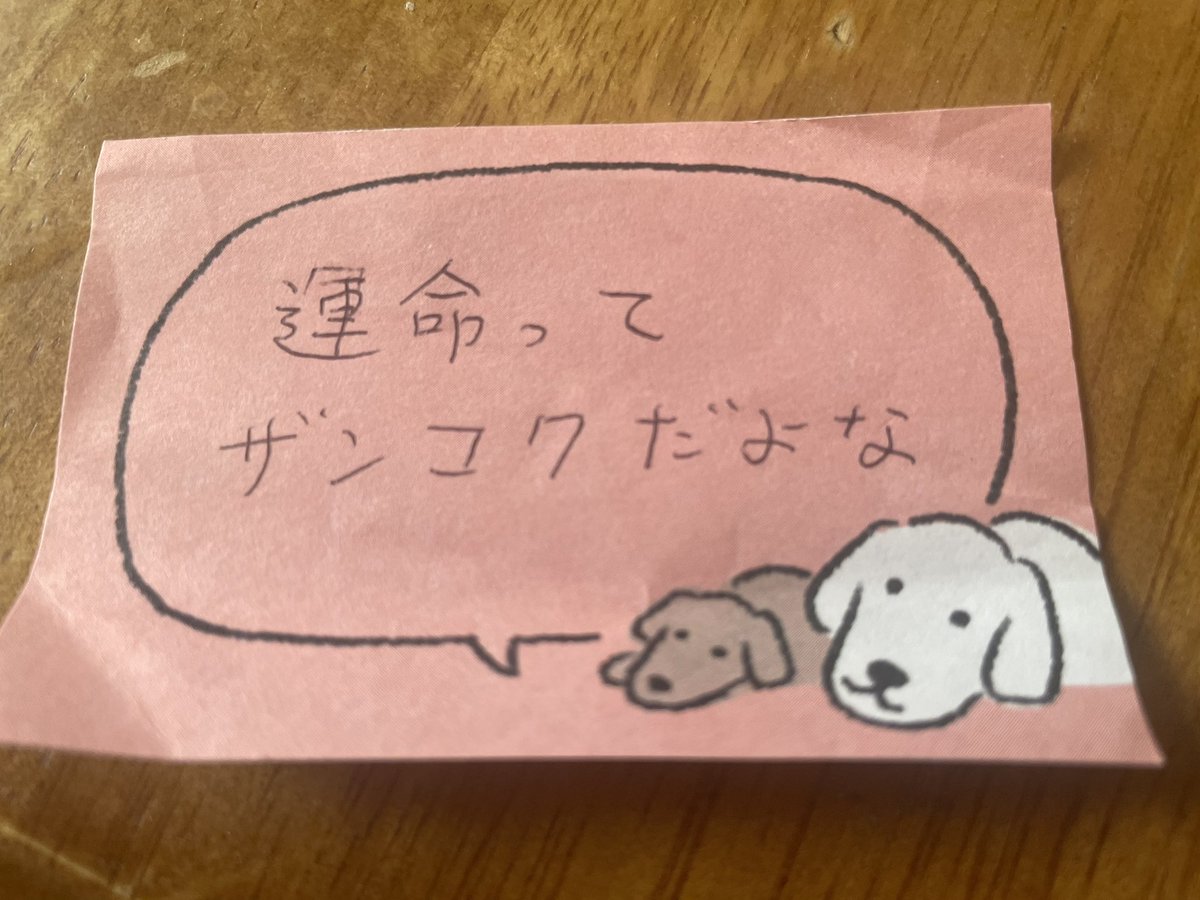 運命って
ザンコクだよな